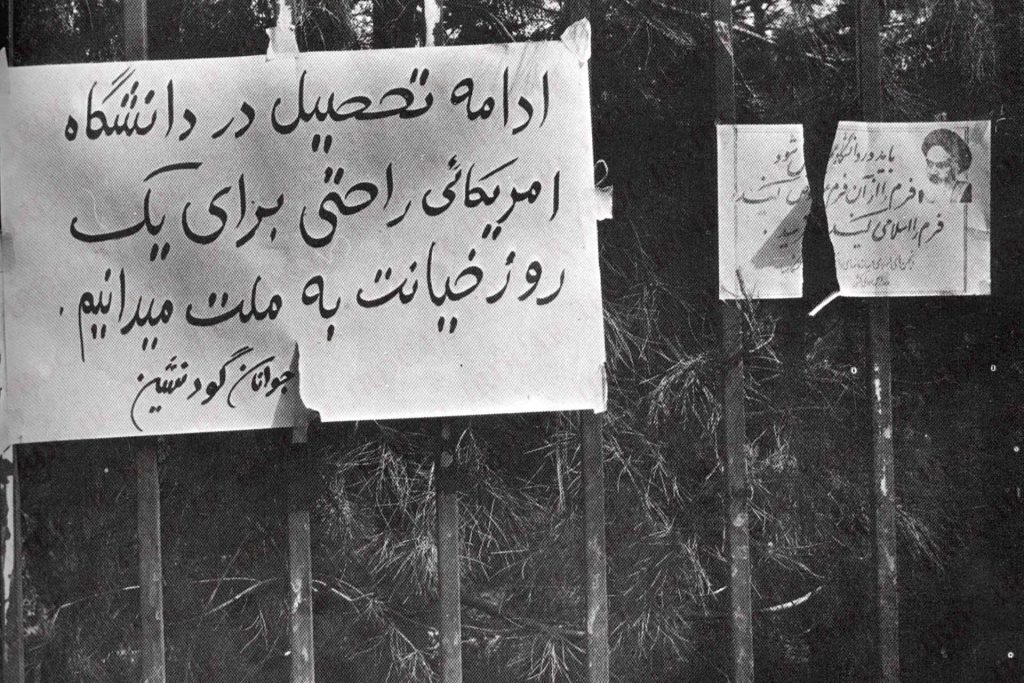 ادامه تحصیل در دانشگاه
امریکائی راحتی برای یک
روز خیانت به ملت میدانیم.
جوانان گود نشین
باید در دانشگاه شود
فرم را از آن فرم کنید
فرم را اسلامی کنید